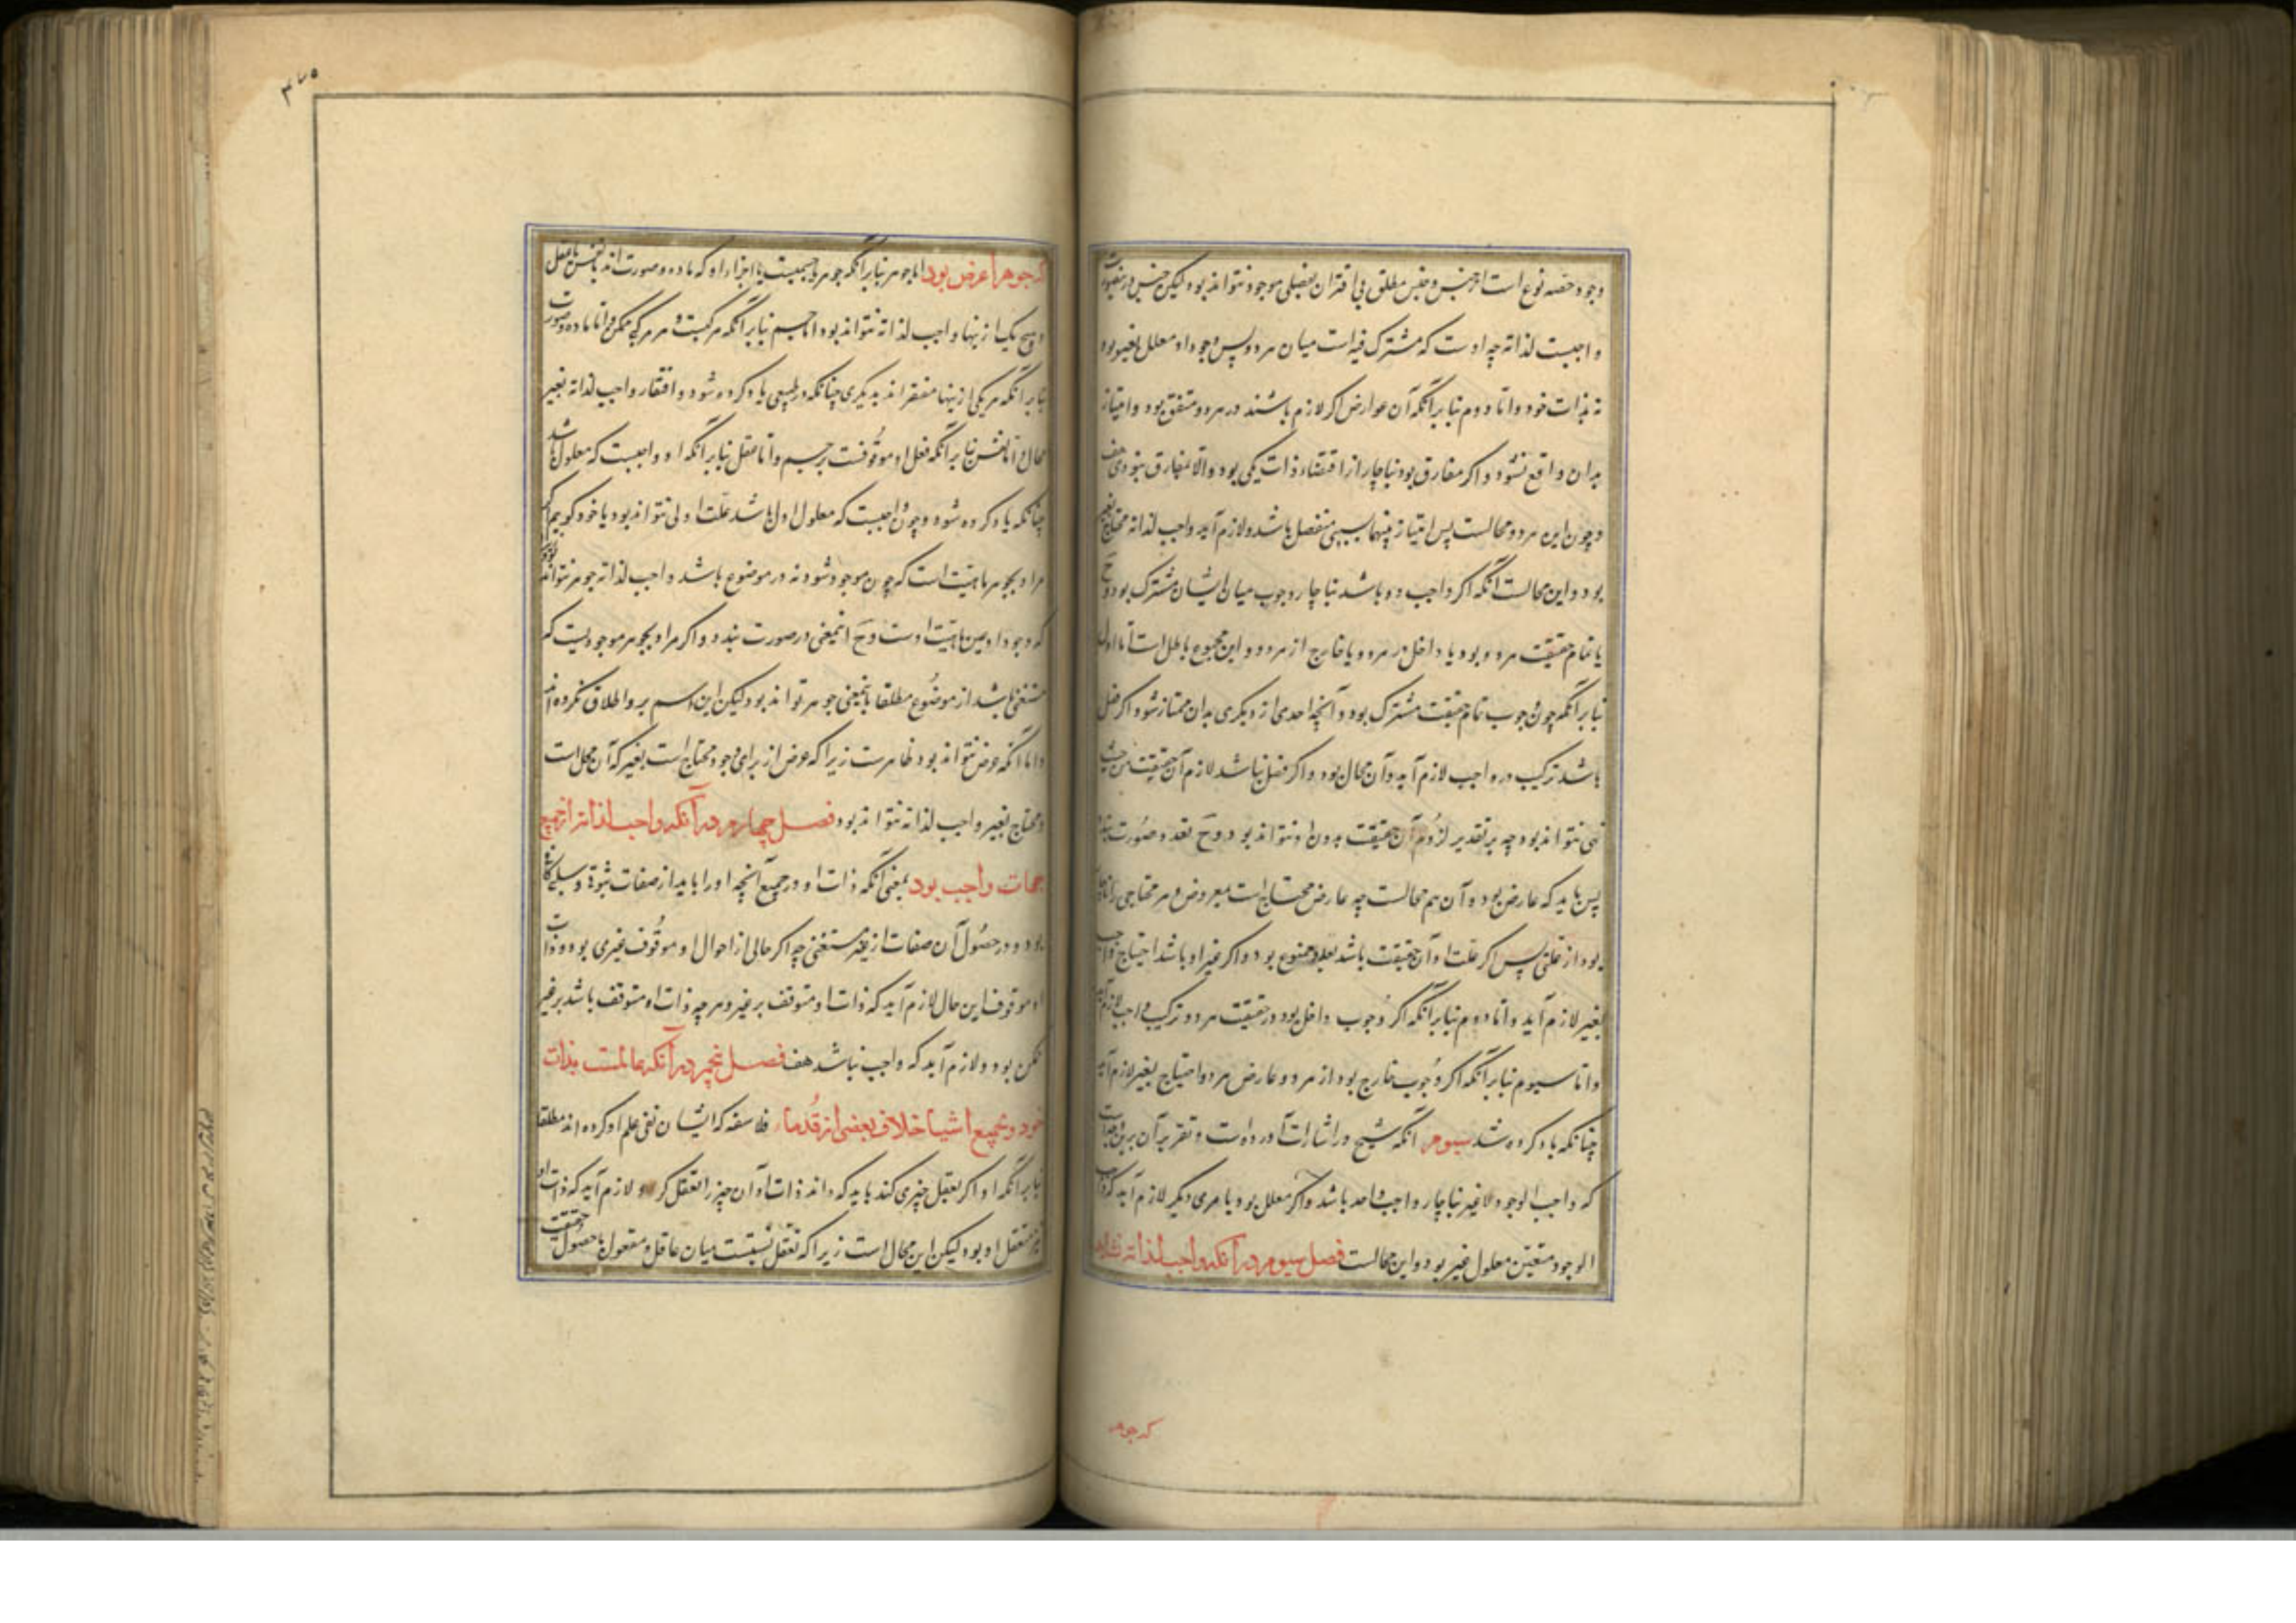 وجود حصه نوع است از جنس و جنس مطلق بی اقتران بفصلی موجود نتواند بود لیکن جنس درینصورت
واجبست لذاته چه اوست که مشترک فیه است میان هر دو پس وجود او معلل بغیر بود
نه بذات خود و اما دوم بنابر آنکه آن عوارض اکر لازم باشند در هر دو متفق بود و امتیاز
بدان واقع نشود و اکر مفارق بود بناچار از اقتضاء ذات یکی بود و الا مفارق نبودی هف
و چون این هر دو محالست پس امتیاز بینهما بسببی منفصل باشد و لازم آید واجب لذاته محتاج بغیر
بود و این محالست آنکه اکر واجب دو باشد بناچار وجوب میان ایشان مشترک بود و ح
یا تمام حقیقت هر دو بود یا داخل در هر دو و یا خارج از هر دو و این مجموع باطل است اما اول
بنابر آنکه چون وجوب تمام حقیقت مشترک بود و آنچه احدی از دیکری بدان ممتاز شود اکر فصل
باشد ترکیب در واجب لازم آید و آن محال بود و اکر فصل نباشد لازم آن حقیقت من حیث
هی نتواند بود چه بر تقدیر لزوم آن حقیقت بدون او نتواند بود و ح تعدد صورت نبندد
پس باید که عارض بود و آن هم محالست چه عارض محتاج است بمعروض و هر محتاجی را
بود از علتی پس اکر علت او آن حقیقت باشد بود و اکر غیر او باشد احتیاج واجب
بغیر لازم آید و اما دوم بنابر آنکه اکر وجوب داخل بود در حقیقت هر دو ترکیب واجب لازم آید
و اما سیوم بنابر آنکه اکر وجوب خارج بود از هر دو و عارض هر دو احتیاج بغیر لازم آید
چنانکه یاد کرده شد سیوم آنکه شیخ در اشارات آورده است و تقریر آن برین وجه است
که واجب الوجود لا غیر بناچار واجب واحد باشد و اکر معلل بود بامری دیکر لازم آید که واجب
الوجود متعین معلول غیر بود و این محالست فصل سیوم در آنکه واجب لذاته نشاید
که جوهر
٣٧٥
که جوهر یا عرض بود اما جوهر بنابر آنکه جوهر یا جسمیست یا اجزاء او که ماده و صورت اند یا نفس یا عقل
و هیچ یک از ینها واجب لذاته نتواند بود اما جسم بنابر آنکه مرکبست و هر مرکبی ممکن و اما ماده و صورت
بنابر آنکه هر یکی از ینها مفتقر اند بدیکری چنانکه در طبیعی یاد کرده شود و افتقار واجب لذاته بغیر
محال و اما نفس بنابر آنکه فعل او موقوفست بر جسم و اما عقل بنابر آنکه او واجبست که معلول باشد
چنانکه یاد کرده شود و چون واجبست که معلول اول باشد علت اولی نتواند بود یا خود کوییم اکر
مراد بجوهر ماهیتی است که چون موجود شود نه در موضوع باشد واجب لذاته جوهر نتواند بود
که وجود او عین ماهیت اوست و ح اینمعنی در صورت نبندد و اکر مراد بجوهر موجودیست که
مستغنی باشد از موضوع مطلقا باینمعنی جوهر تواند بود لیکن این اسم بر و اطلاق نکرده اند
و اما آنکه عرض نتواند بود ظاهرست زیرا که عرض از برای وجود محتاج است بغیر که آن محل است
و محتاج بغیر واجب لذاته نتواند بود فصل چهارم در آنکه واجب لذاته از جمیع
جهات واجب بود بمعنی آنکه ذات او در جمیع آنچه او را باید از صفات ثبوتی و سلبی کافی
بود و در حصول آن صفات از غیر مستغنی چه اکر حالی از احوال او موقوف غیری بود و ذات
او موقوف این حال لازم آید که ذات او متوقف بر غیر و هر چه ذات او متوقف باشد بر غیر
ممکن بود و لازم آید که واجب نباشد هف فصل پنجم در آنکه عالمست بذات
خود و بجمیع اشیا خلاف بعضی از قدماء فلاسفه که ایشان نفی علم او کرده اند مطلقا
بنابر آنکه او اکر تعقل چیزی کند باید که داند ذات او آن چیز را تعقل کرد و لازم آید که ذات او
نیز متعقل او بود لیکن این محال است زیرا که تعقل نسبتیست میان عاقل و معقول یا حصول حقیقت